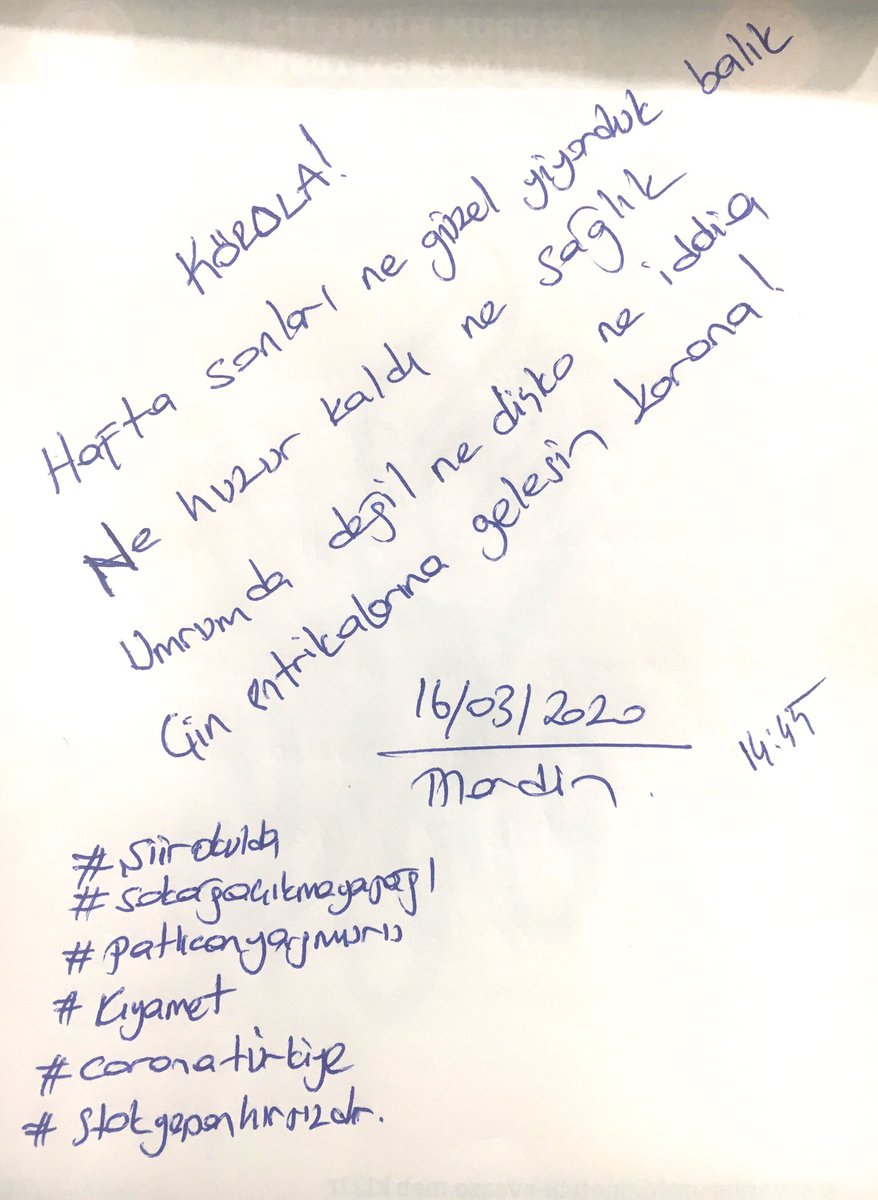 KÖROLA!
Hafta sonları ne güzel yiyorduk balık
Ne huzur kaldı ne sağlık
Umrumda değil ne disko ne iddia
Çin entrikalarına gelesin korona!
16/03/2020
14:45
Mardin.
#şiirokulda
#sokağaçıkmayasağı
#patlıcanyağmuru
#Kıyamet
#coronatürkiye
#stokyapanhırsızdır.